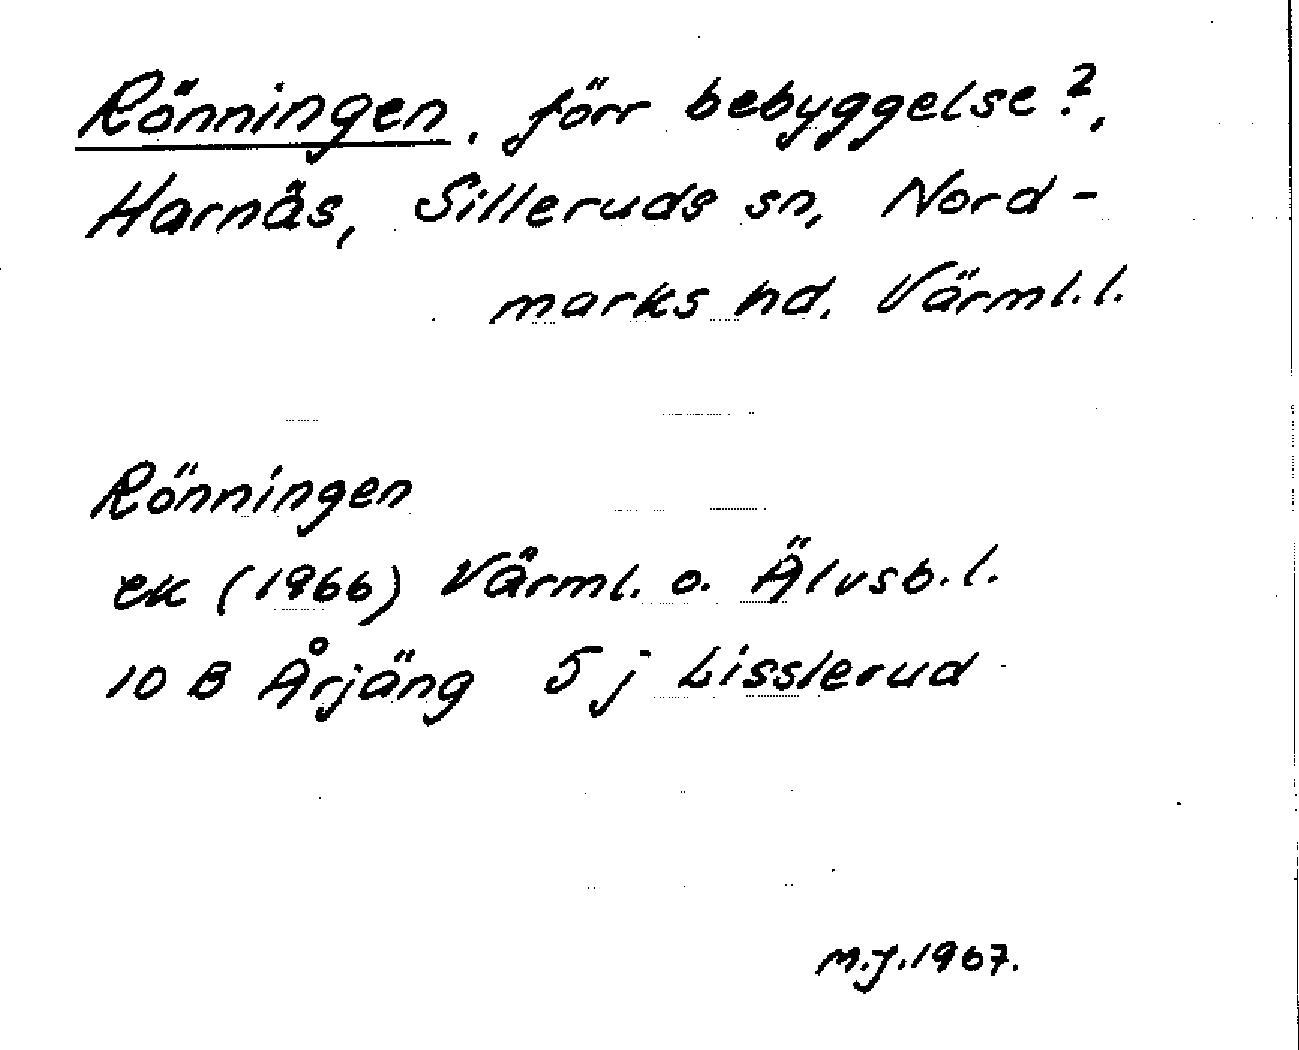 Rönningen, förr bebyggelse?,
Harnäs, Silleruds sn, Nord-
marks hd. Värml.l.
Rönningen
ek (1966) Värml. o. Älvsb.l.
10 B Årjäng 5 j Lisslerud
M.J.1967.